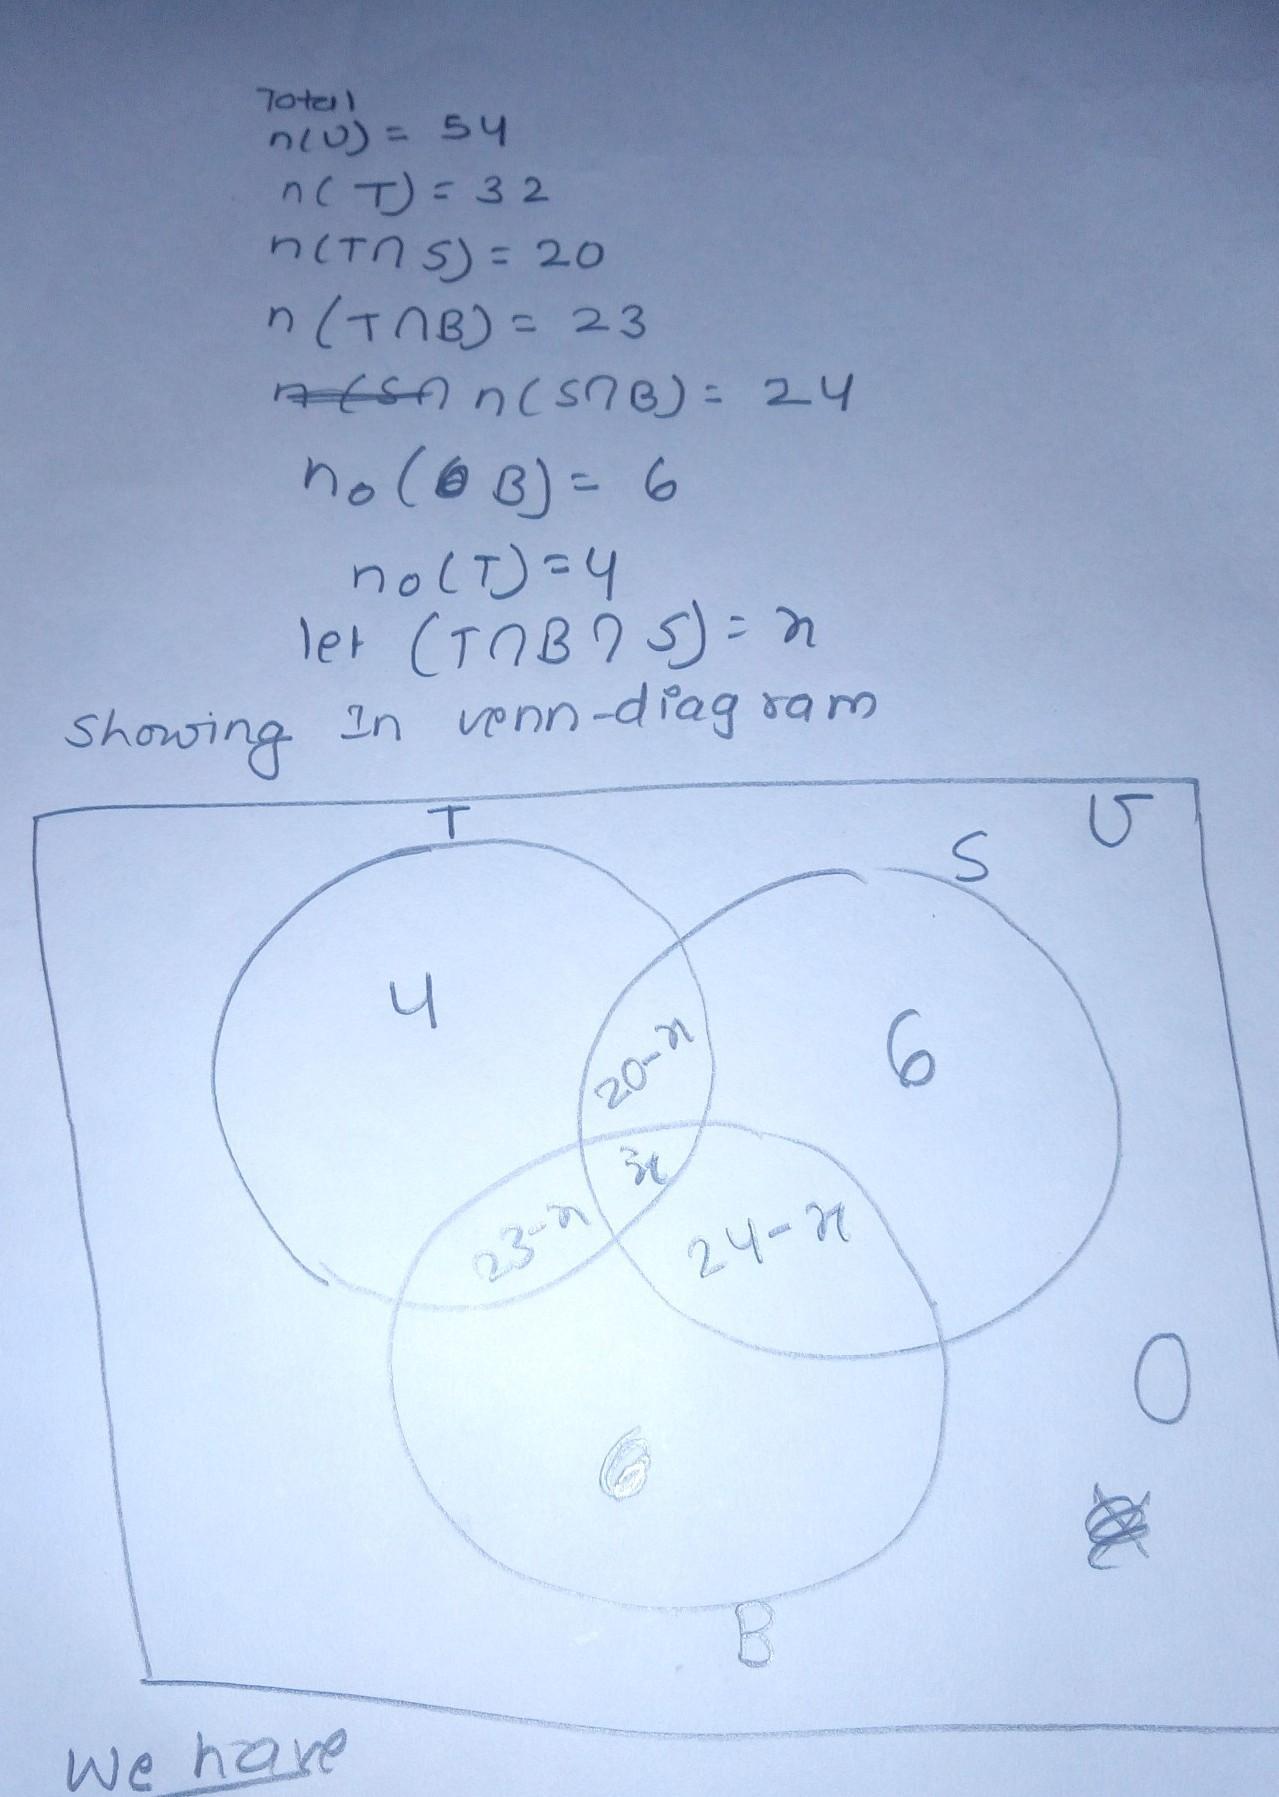 Total
n(U) = 54
n(T) = 32
n(T∩S) = 20
n(T∩B) = 23
n(S∩B) = 24
n₀(B) = 6
n₀(T) = 4
let (T∩B∩S) = x
showing In venn-diagram
T
S
U
4
6
20-x
x
23-x
24-x
0
B
We have